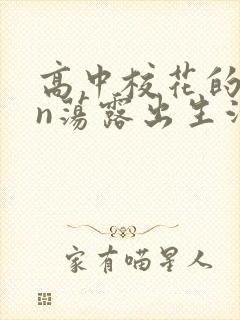 高中校花的
n蕩露出生
家有喵星人